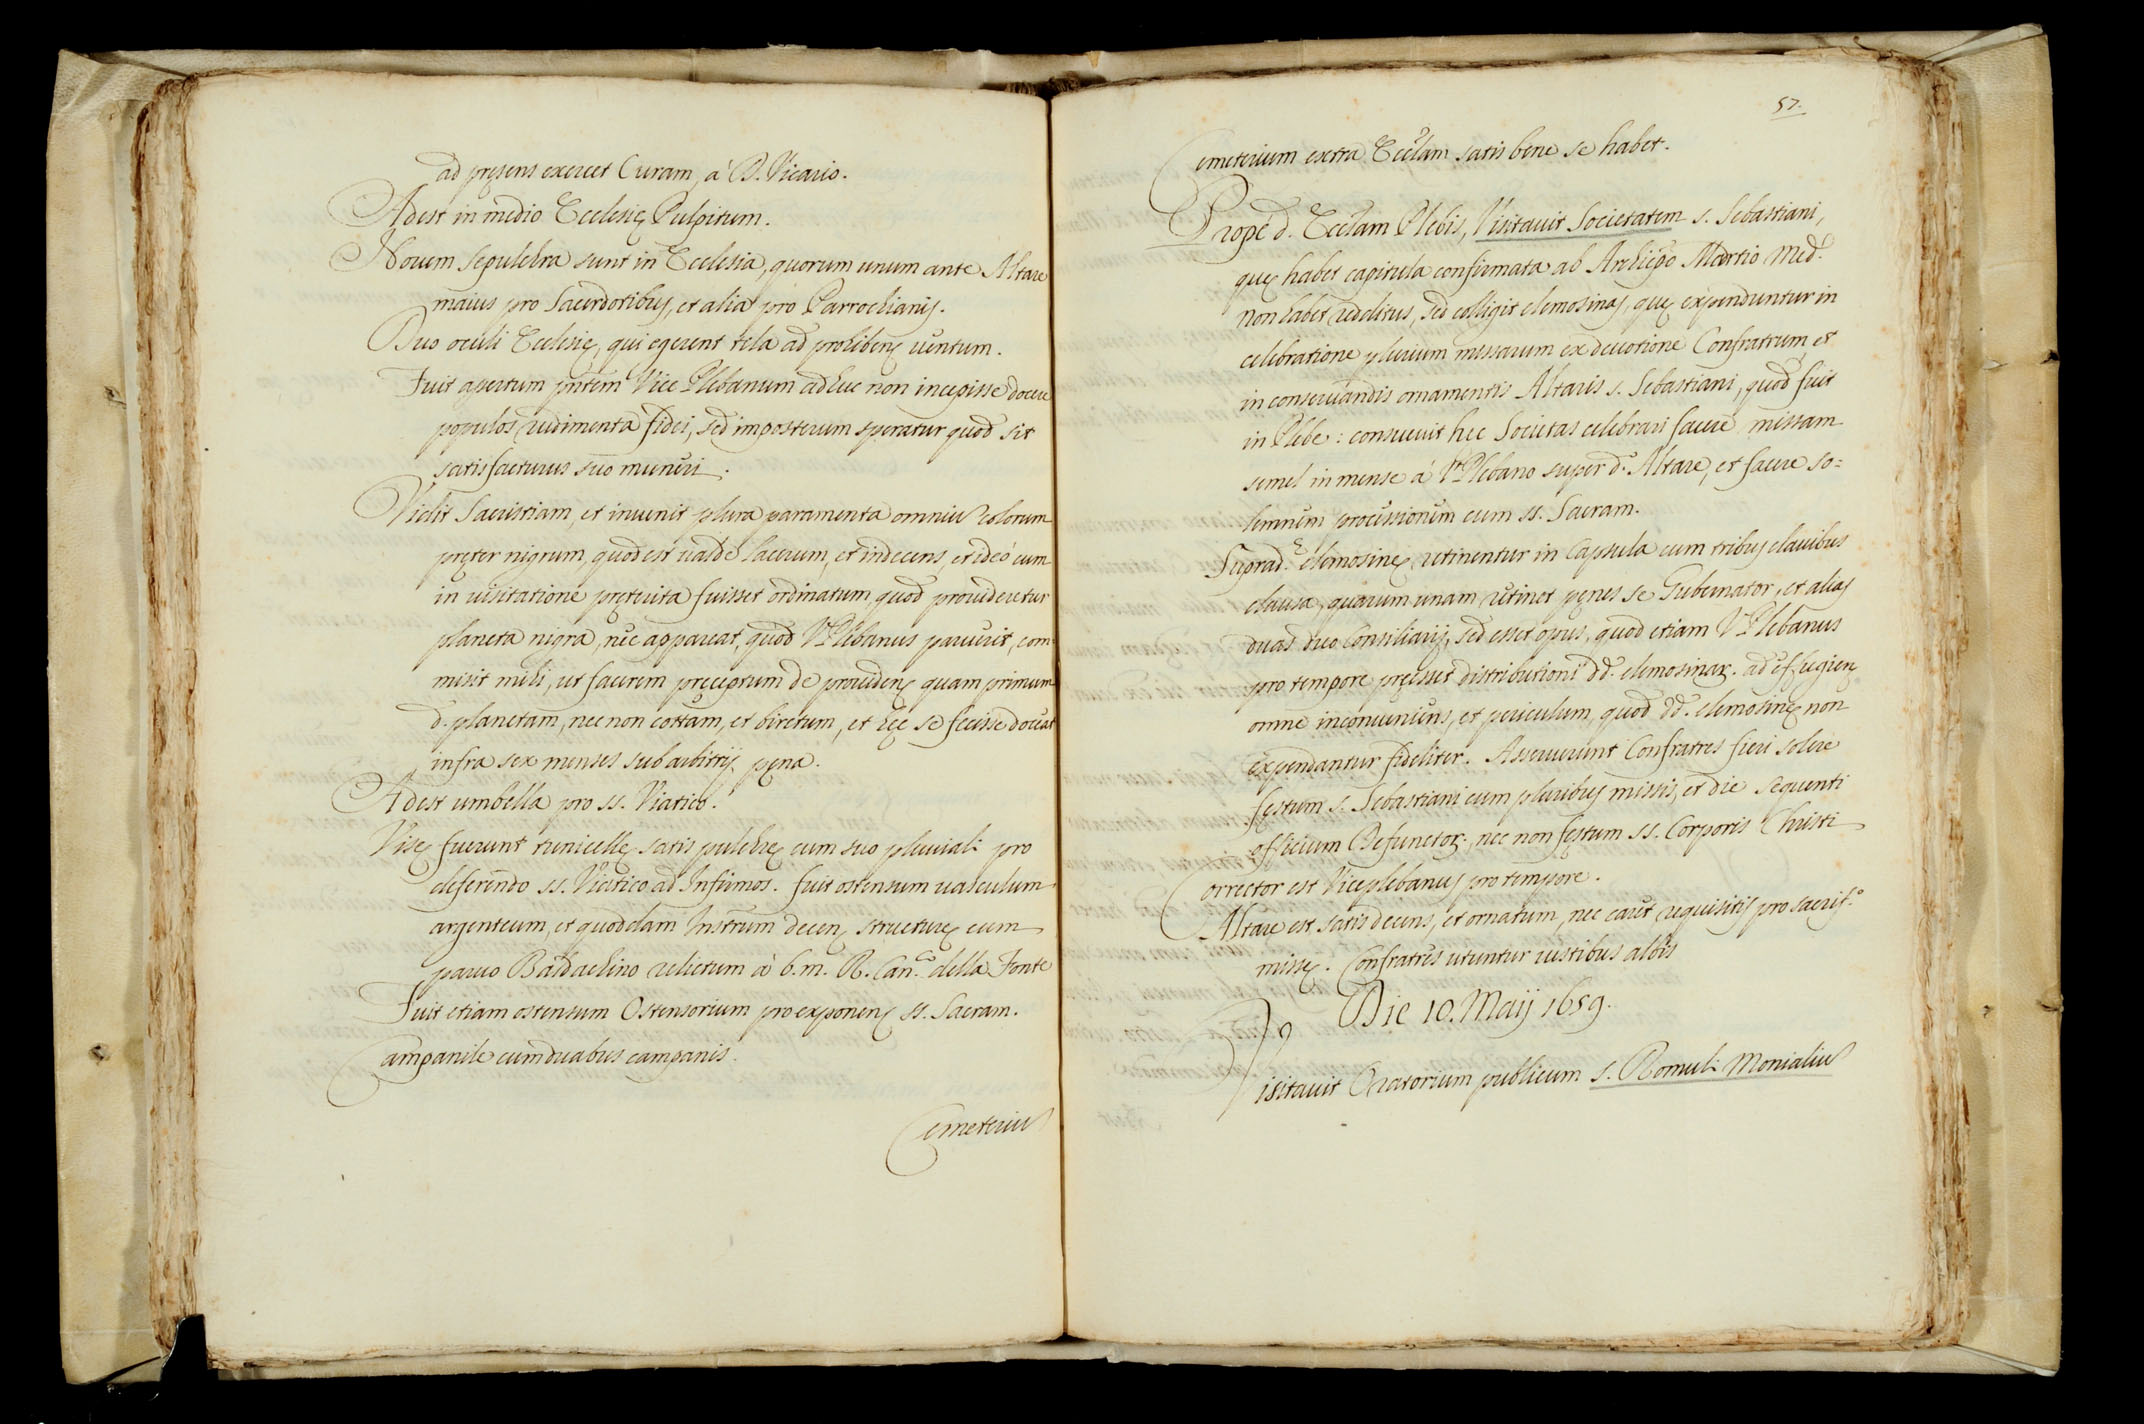 ad pręsens exercet Curam, à D. Vicario.
Adest in medio Ecclesię Pulpitum.
Novem Sepulchra sunt in Ecclesia, quorum unum ante Altare
maius pro Sacerdotibus, et alia pro Parrochianis.
Duo oculi Ecclesię, qui egerent tela ad prohibenđ ventum.
Fuit assertum pñtem Vice Plebanum adhuc non incepisse docere
populos rudimenta fidei, sed imposterum speratur quod sit
satisfacturus suo muneri.
Vidit Sacristiam, et invenit plura paramenta omniũ colorum
pręter nigrum, quod est valde lacerum, et indecens, et ideò cum
in visitatione pręterita fuisset ordinatum, quod provideretur
planeta nigra, nec appareat, quod V. Plebanus paruerit, com-
misit mihi, ut facerem pręceptum de providenđ quam primum
d. planetam, nec non cottam, et biretum, et hęc se fecisse doceat
infra sex menses sub arbitrij pęna.
Adest umbella pro ss. Viatico.
Visę fuerunt tunicellę satis pulchrę cum suo pluviali pro
deferendo ss. Viatico ad Infirmos. fuit ostensum vasculum
argenteum, et quoddam Instrũm decenٖ structurę cum
parvo Baldachino relictum à b. m. R. Can.co della Fonte
Fuit etiam ostensum Ostensorium pro exponenđ ss. Sacram.
Campanile cum duabus campanis.
Cemeteriũ
57.
Cemeterium extra Ecclãm satis bene se habet.
Propè d. Ecclãm Plebis, Visitavit Societatem s. Sebastiani,
quę habet capitula confirmata ab Archiepõ Martio Med.
non habet redditus, sed colligit elemosinas, quę expenduntur in
celebratione plurium missarum ex devotione Confratrum et
in conservandis ornamentis Altaris s. Sebastiani, quod fuit
in Plebe: consuevit hęc Societas celebrari facere missam
semel in mense à V. Plebano super d. Altare, et facere so=
lemnem processionem cum ss. Sacram.
Suprad. elemosinę retinentur in Capsula cum tribus clavibus
clausa, quarum unam retinet penes se Gubernator, et alias
duas duo Consiliarij, sed esset opus, quod etiam V. Plebanus
pro tempore pręesset distributioni dd. elemosinar. ad effugienđ
omne inconveniens, et periculum, quod dd. elemosinę non
expendantur fideliter. Asseruerunt Confratres fieri solere
festum s. Sebastiani cum pluribus missis, et die sequenti
officium Defunctor., nec non festum ss. Corporis Christi
Corrector est Viceplebanus pro tempore.
Altare est satis decens, et ornatum, nec caret requisitis pro sacrif.o
missę. Confratres utuntur vestibus albis
Die 10. Maij 1659.
Visitavit Oratorium publicum s. Romuli Monialiũ